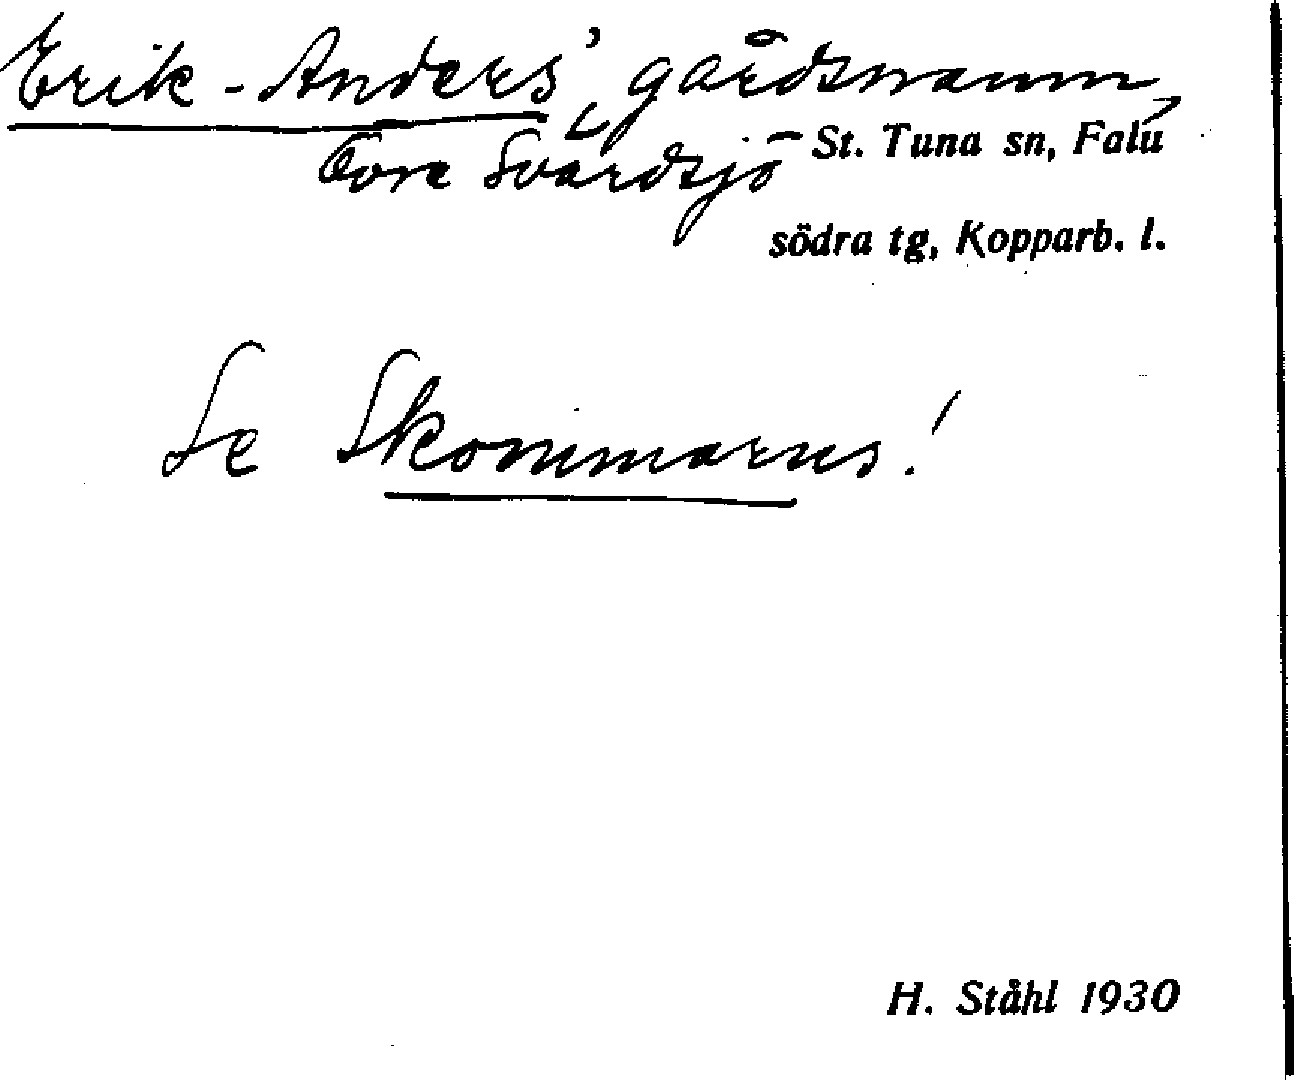 Erik-Anders', gårdsnamn,
Övre Svärdsjö St. Tuna sn, Falu
södra tg, Kopparb. l.
Se Skommarns!
H. Ståhl 1930